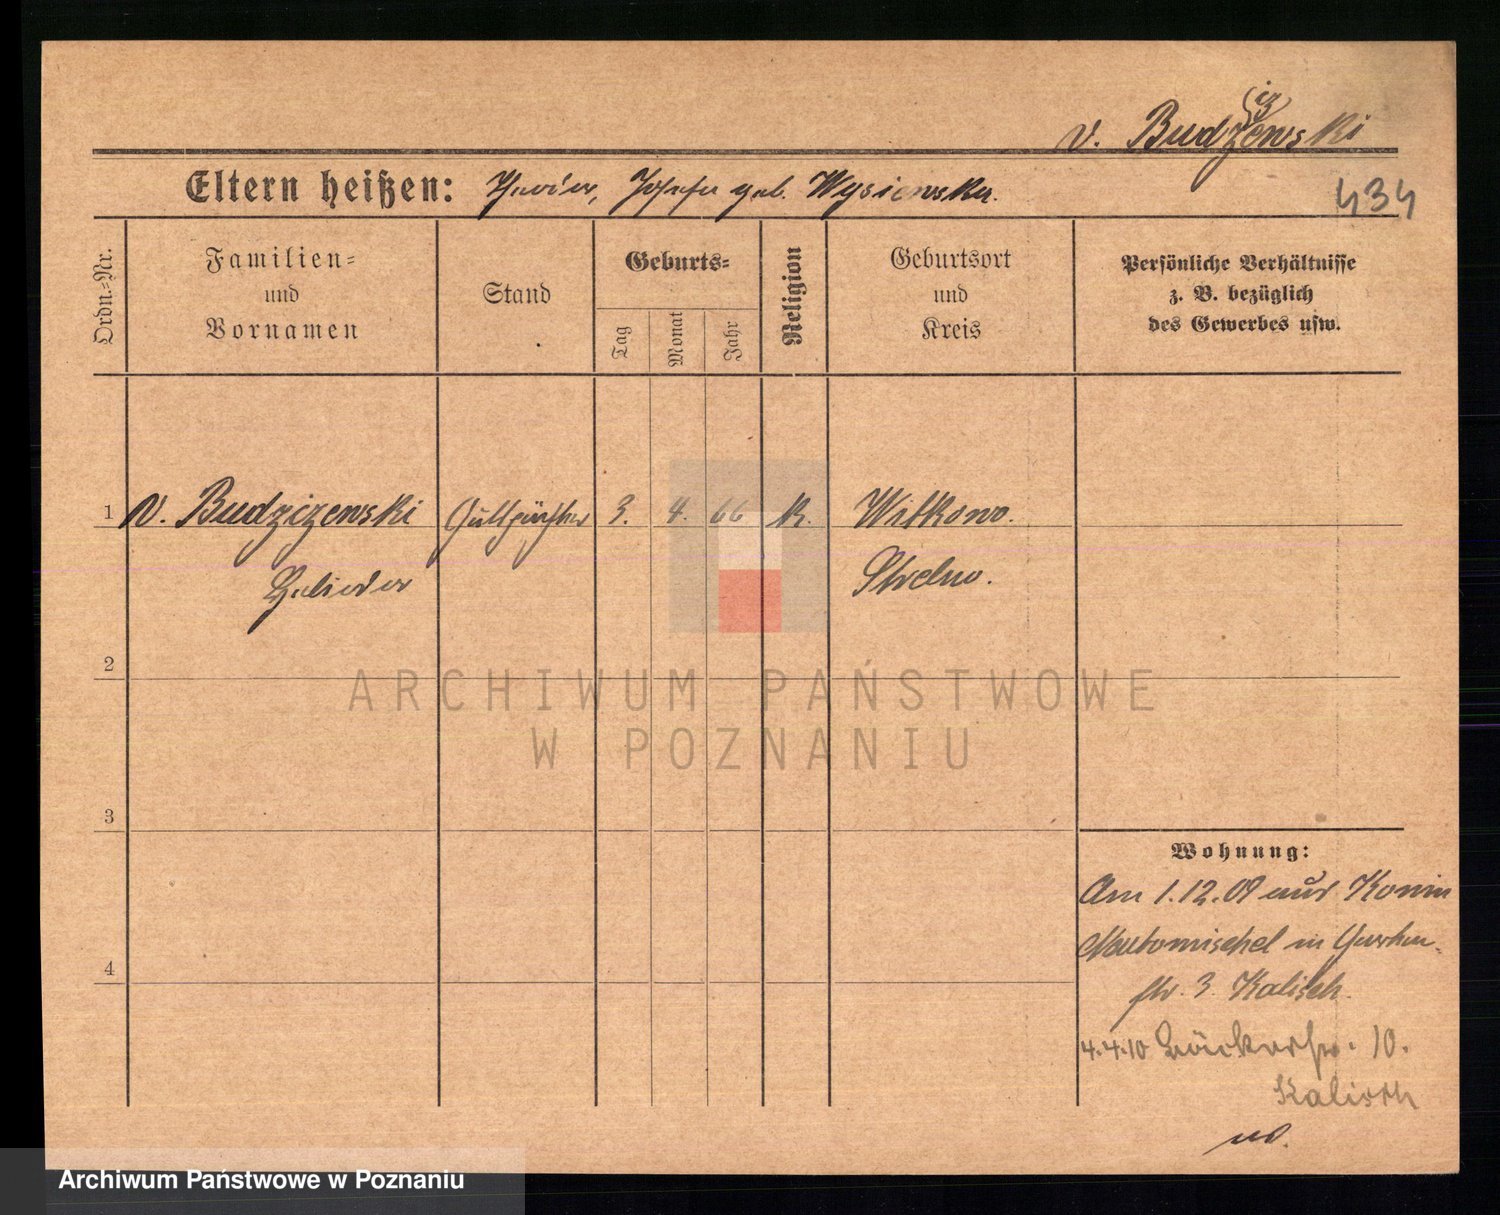 v. Budzizewski
Eltern heißen: Xavier, Josefa geb. Wysienska.
434
Ordn.-Nr.
Familien-
und
Vornamen
Stand
Geburts-
Tag
Monat
Jahr
Religion
Geburtsort
und
Kreis
Persönliche Verhältnisse
z. B. bezüglich
des Gewerbes usw.
1 v. Budzizewski 3. 4. 66 K. Witkowo.
Strelno.
2
ARCHIWUM PAŃSTWOWE
W POZNANIU
3
Wohnung:
Am 1.12.09 aus Konin
in
4
str. 3. Kalisch.
4.4.10 Bäckerstr. 10.
Kalisch
Archiwum Państwowe w Poznaniu